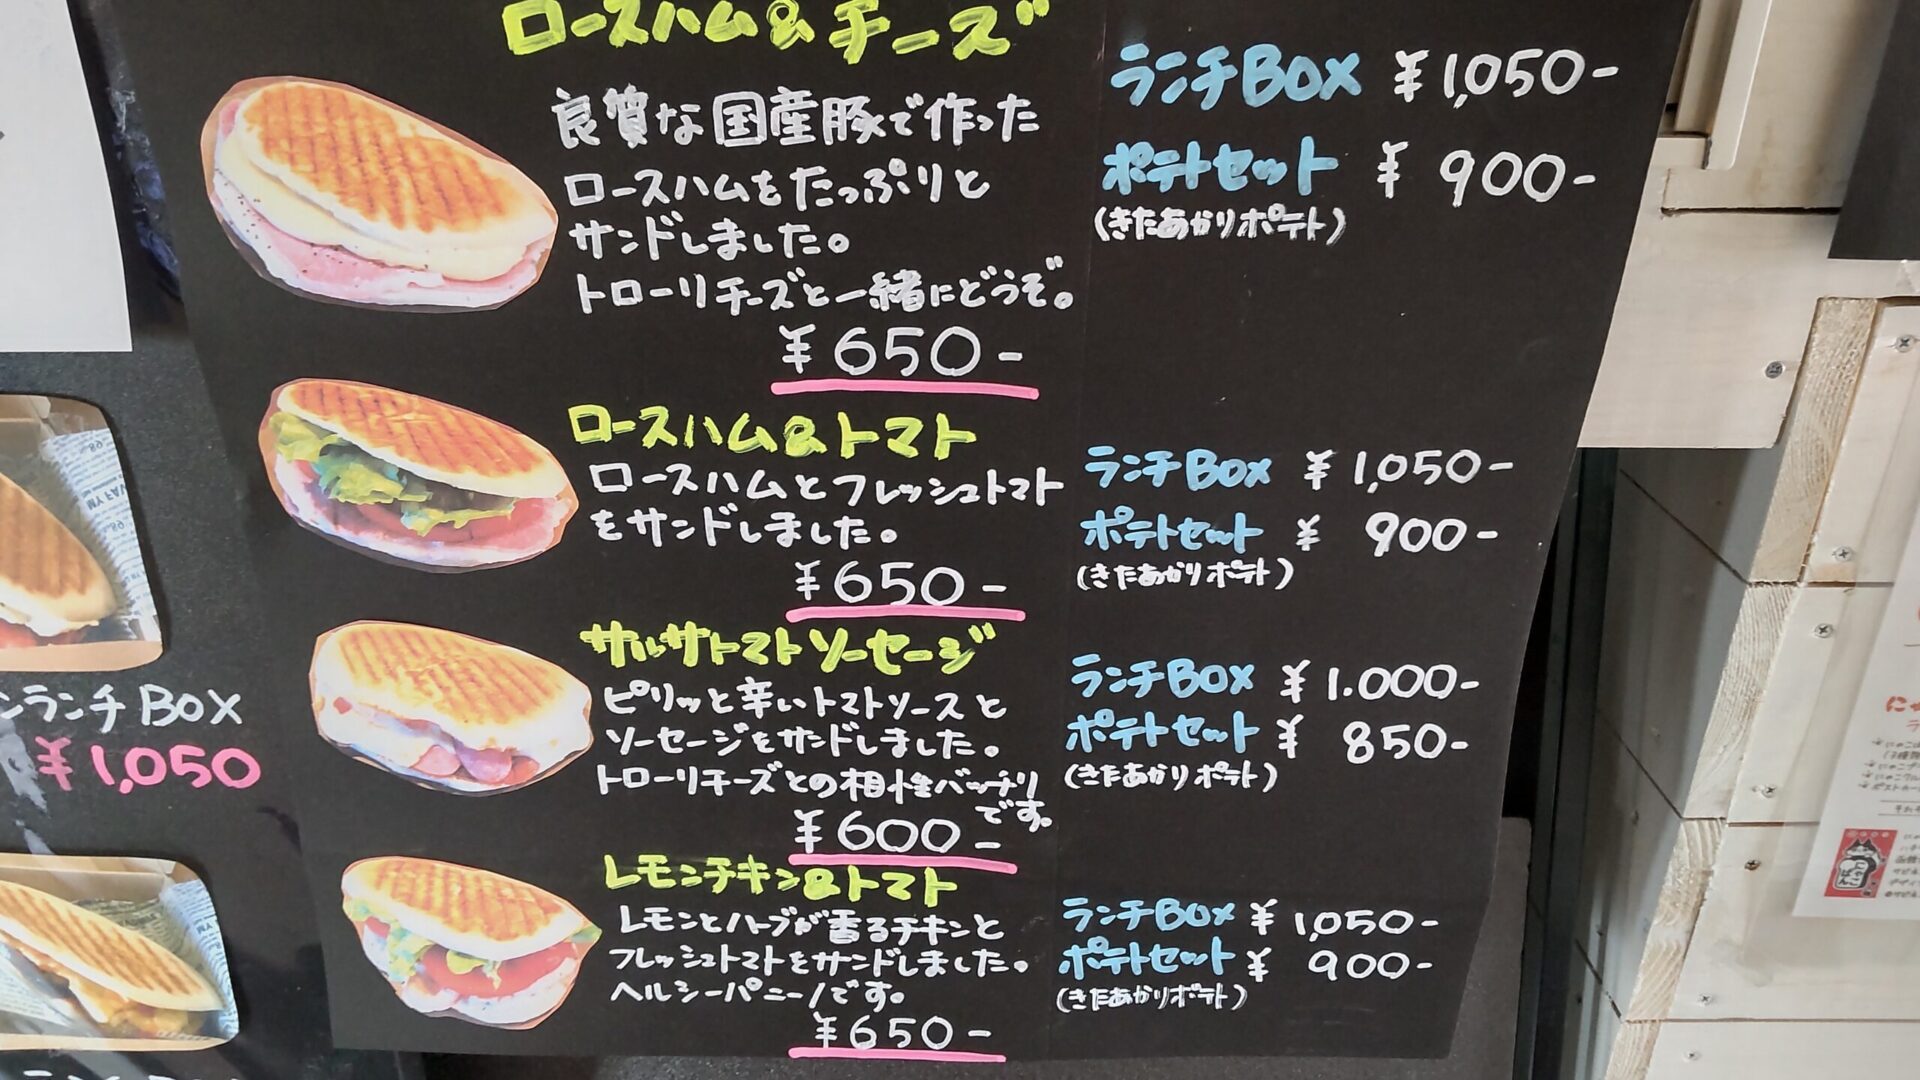 ロースハム&チーズ
良質な国産豚で作った
ロースハムをたっぷりと
サンドしました。
トローリチーズと一緒にどうぞ。
¥650-
ランチBOX ¥1,050-
ポテトセット ¥900-
(きたあかりポテト)
ロースハム&トマト
ロースハムとフレッシュトマト
をサンドしました。
¥650-
ランチBOX ¥1,050-
ポテトセット ¥900-
(きたあかりポテト)
サルサトマトソーセージ
ピリッと辛いトマトソースと
ソーセージをサンドしました。
トローリチーズとの相性バッチリ
です。
¥600-
ランチBOX ¥1.000-
ポテトセット ¥850-
(きたあかりポテト)
レモンチキン&トマト
レモンとハーブが香るチキンと
フレッシュトマトをサンドしました。
ヘルシーパニーノです。
¥650-
ランチBOX ¥1,050-
ポテトセット ¥900-
(きたあかりポテト)
ンランチBOX
¥1,050